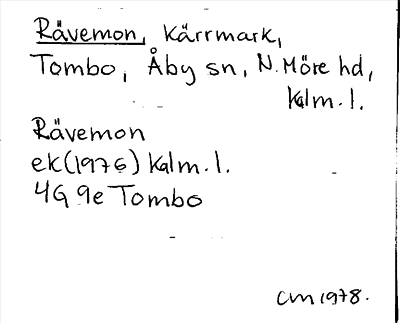 Rävemon, kärrmark,
Tombo, Åby sn, N. Möre hd,
Kalm. l.
Rävemon
ek(1976) Kalm. l.
4G 9e Tombo
CM 1978.